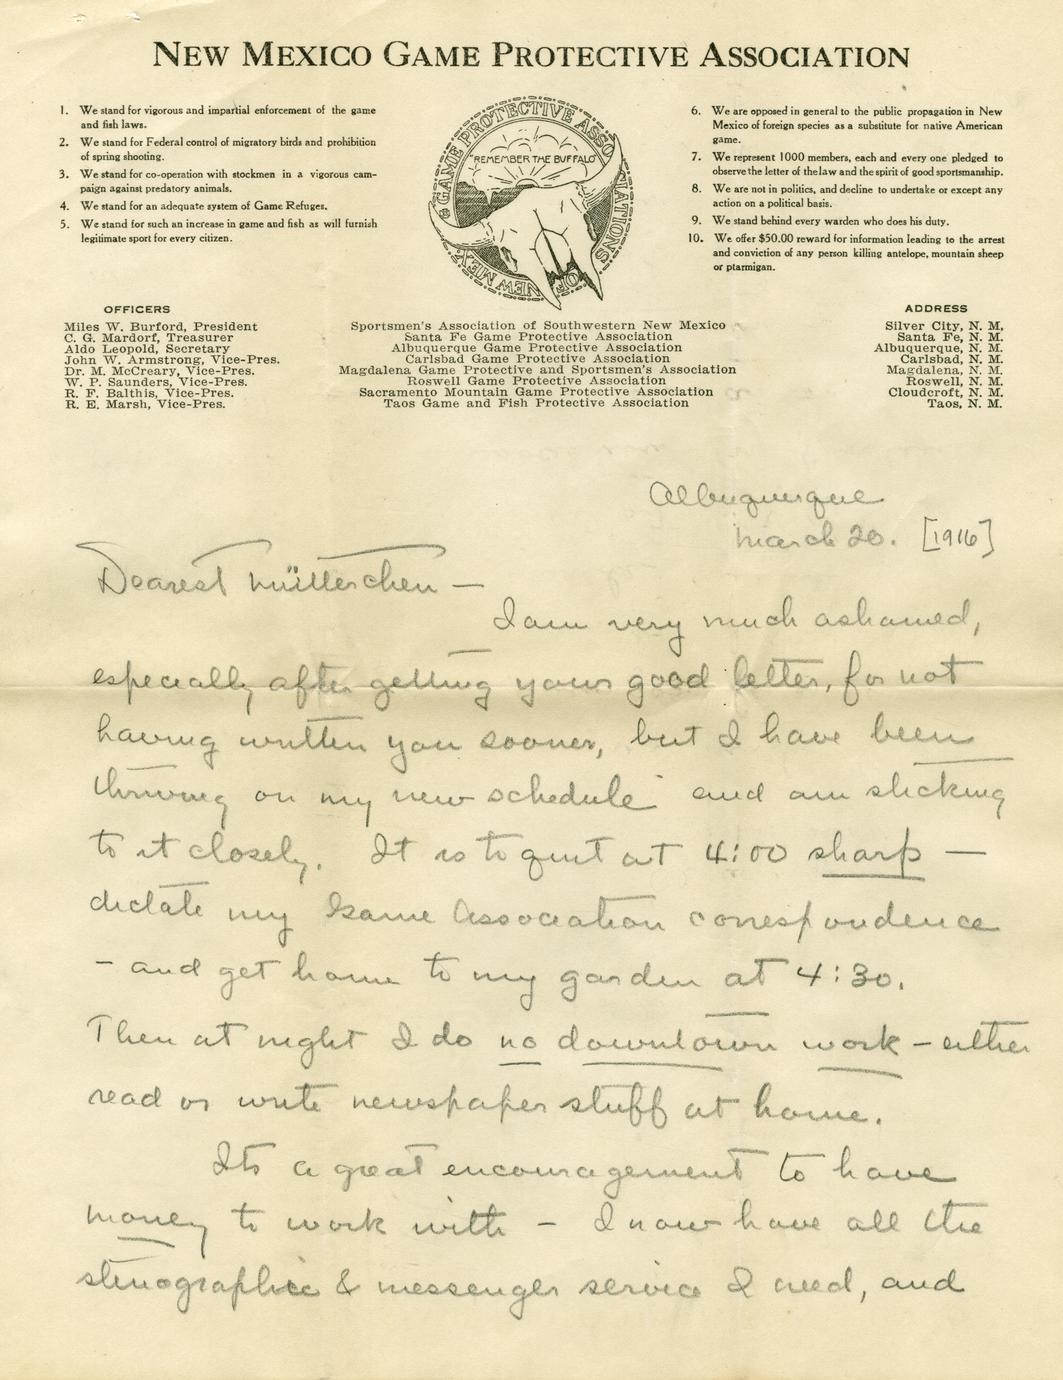 NEW MEXICO GAME PROTECTIVE ASSOCIATION
1. We stand for vigorous and impartial enforcement of the game
and fish laws.
2. We stand for Federal control of migratory birds and prohibition
of spring shooting.
3. We stand for co-operation with stockmen in a vigorous cam-
paign against predatory animals.
4. We stand for an adequate system of Game Refuges.
5. We stand for such an increase in game and fish as will furnish
legitimate sport for every citizen.
GAME PROTECTIVE ASSOCIATIONS OF NEW MEX
"REMEMBER THE BUFFALO"
6. We are opposed in general to the public propagation in New
Mexico of foreign species as a substitute for native American
game.
7. We represent 1000 members, each and every one pledged to
observe the letter of the law and the spirit of good sportsmanship.
8. We are not in politics, and decline to undertake or except any
action on a political basis.
9. We stand behind every warden who does his duty.
10. We offer $50.00 reward for information leading to the arrest
and conviction of any person killing antelope, mountain sheep
or ptarmigan.
OFFICERS
Miles W. Burford, President
C. G. Mardorf, Treasurer
Aldo Leopold, Secretary
John W. Armstrong, Vice-Pres.
Dr. M. McCreary, Vice-Pres.
W. P. Saunders, Vice-Pres.
R. F. Balthis, Vice-Pres.
R. E. Marsh, Vice-Pres.
Sportsmen's Association of Southwestern New Mexico
Santa Fe Game Protective Association
Albuquerque Game Protective Association
Carlsbad Game Protective Association
Magdalena Game Protective and Sportsmen's Association
Roswell Game Protective Association
Sacramento Mountain Game Protective Association
Taos Game and Fish Protective Association
ADDRESS
Silver City, N. M.
Santa Fe, N. M.
Albuquerque, N. M.
Carlsbad, N. M.
Magdalena, N. M.
Roswell, N. M.
Cloudcroft, N. M.
Taos, N. M.
Albuquerque
March 20. [1916]
Dearest Mütterchen —
I am very much ashamed,
especially after getting your good letter, for not
having written you sooner, but I have been
thriving on my new schedule and am sticking
to it closely. It is to quit at 4:00 sharp —
dictate my Game Association correspondence
- and get home to my garden at 4:30.
Then at night I do no downtown work - either
read or write newspaper stuff at home.
Its a great encouragement to have
money to work with - I now have all the
stenographic & messenger service I need, and